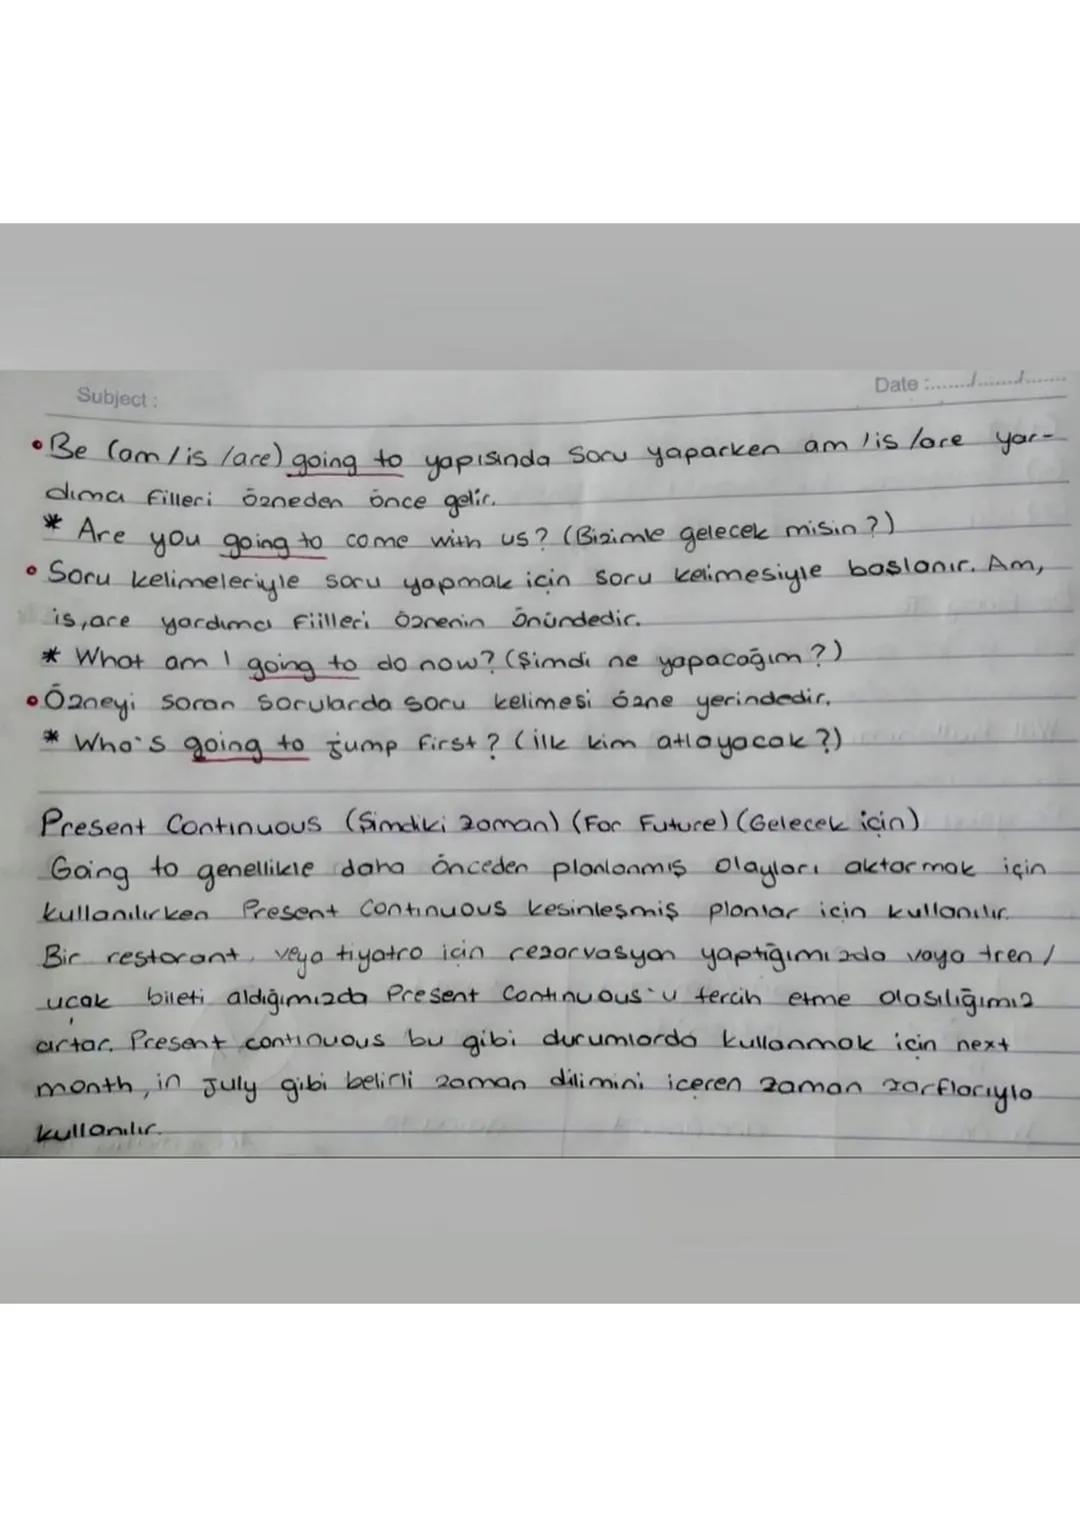 Subject :
Date :......./......./.......
• Be (am / is / are) going to yapısında soru yaparken am / is / are yar-
dımcı filleri özneden önce gelir.
* Are you going to come with us? (Bizimle gelecek misin?)
• Soru kelimeleriyle soru yapmak için soru kelimesiyle başlanır. Am,
is, are yardımcı fiilleri öznenin önündedir.
* What am I going to do now? (Şimdi ne yapacağım?)
• Özneyi soran sorularda soru kelimesi özne yerindedir.
* Who's going to jump first? (ilk kim atlayacak?)
Present Continuous (Şimdiki zaman) (For Future) (Gelecek için)
Going to genellikle daha önceden planlanmış olayları aktarmak için
kullanılırken Present Continuous kesinleşmiş planlar için kullanılır.
Bir restorant veya tiyatro için rezarvasyon yaptığımızda vaya tren /
uçak bileti aldığımızda Present Continuous'u tercih etme olasılığımız
artar. Present continuous bu gibi durumlarda kullanmak için next
month, in July gibi belirli zaman dilimini içeren zaman zarflarıyla
kullanılır.